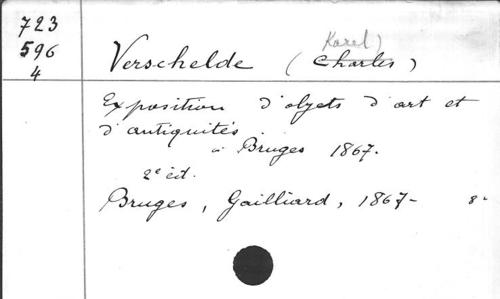 723
596
4
Karel)
Verschelde (Charles)
Exposition d'objets d'art et
d'antiquités
à Bruges 1867.
2e éd.
Bruges, Gailliard, 1867- 8°